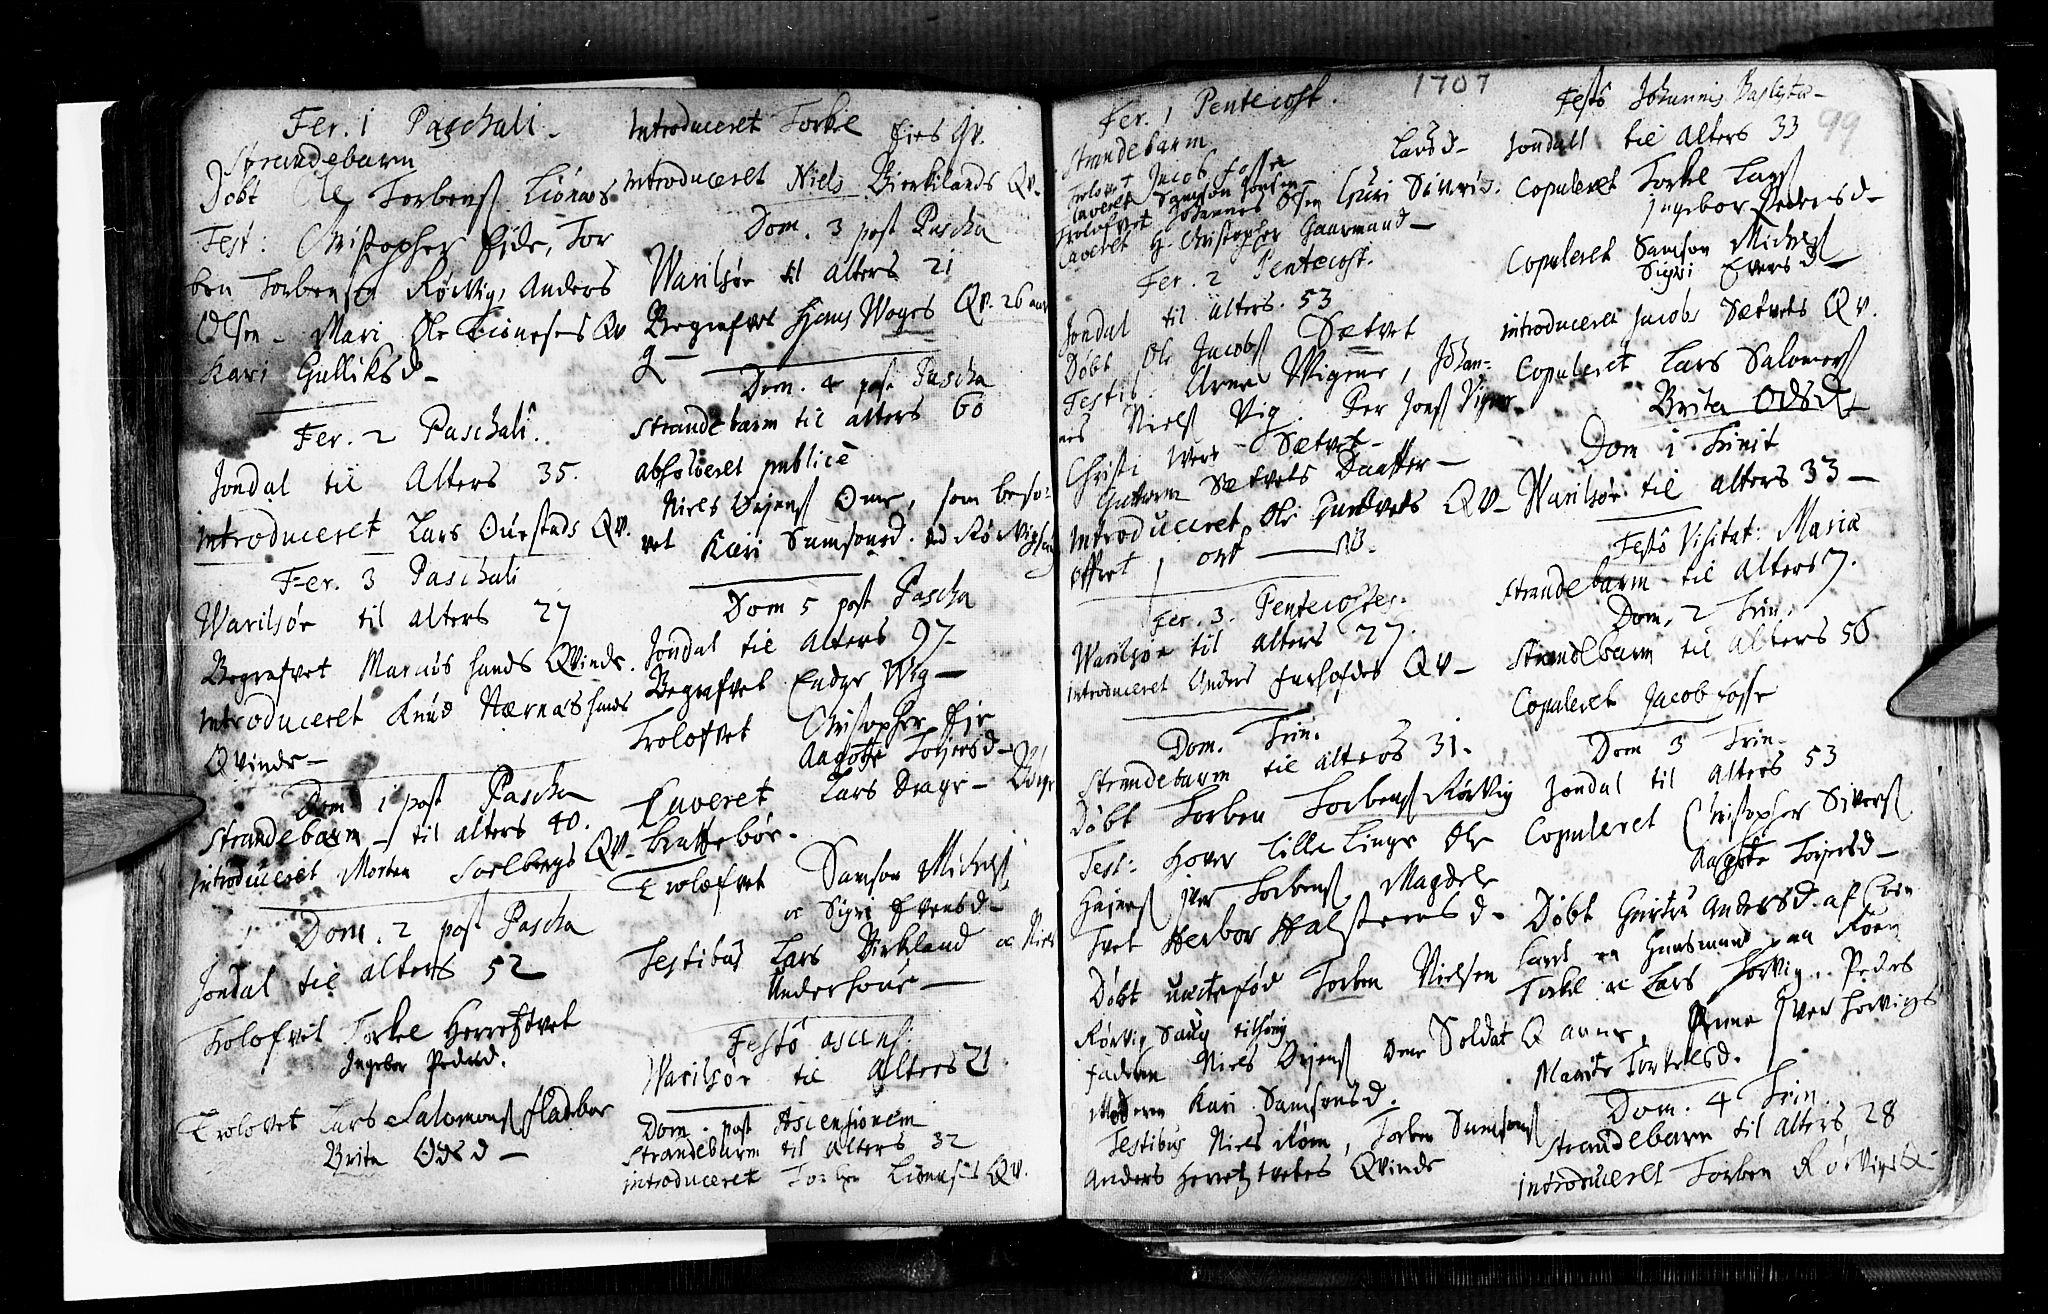 Fer. 1 Paschali
Strandebarm
Døbt Ole Torbens Lionæs
Test: Christopher Eide, Tor
ben Torbensen Rørvig, Anders
Olsen - Mari Ole Lioneses Qv
Kari Gulliksd -
Fer. 2 Paschali
Jondal til Alters 35.
introduceret Lars Qv.
Fer. 3 Paschali
Warilsøe til alters 27
Begrafvet Marcus sands Qvinde.
introduceret Knud Nærnæs
Qvinde -
Dom 1 post Pascha
Strandebarm - til alters 40.
introduceret Morten Solbergs Qv -
Dom. 2 post Pascha
Jondal til alters 52
Trolofvet Torkel Herrestvet
Ingebor Pedersd.
Trolovet Lars Salomons Fladebøe
Brita Odsd -
Introduceret Torkel Eies Qv.
introduceret Niels Birkilands Qv -
Dom. 3 post Pascha
Warilsøe til alters 21
Begrafvet Hans Woges Qv. 26 aar
Dom. 4 post Pascha
Strandebarm til alters 60
absolveret publicè
Niels som beso-
vet Kari Samsonsd.
Dom 5 post Pascha
Jondal til Alters 97 -
Begrafvet Endre Wig -
Trolofvet Christopher Eie
Aagote Torjersd -
Caveret Lars Drage -
Kattebøe -
Trolofvet Samson Michels
oc Sigri Eversd -
Testibus Lars Birkland oc Niels
Underhoue -
Festô ascens:
Warilsøe til Alters 21.
Dom. post Ascensionem
Strandebarm til alters 32
introduceret Torben Lionesis Qv.
1707
99
Fer. 1 Pentecost.
Strandebarm
Trolovet Jacob Fosse Larsd -
Caveret Samson Jonsen
Trolofvet Johannes Olsen Guri Siuris.
Caveret H. Christopher Gaarmand -
Fer. 2 Pentecost.
Jondal til alters. 53
Døbt Ole Jacobs Sætvet
Testis: Arne Wigene, Johan-
nes Niels Vig. Per Jons Vigene
Christi Ivers Sætvet -
Guttorm Sætvets Daatter -
Introduceret Ole Qv -
offret 1 ort
Fer. 3. Pentecostes.
Warilsøe til alters 27.
introduceret Anders Furhofdes Qv -
Dom. Trin.
Strandebarm til alters 31.
Døbt Torben Torbens Rørvig
Test: Hover Lille Linge Ole
iver Torbens, Magdele
Tvet Herbor Halstensd -
Døbt uecte fød Torben Nielsen
Rørvig
Faderen Niels Soldat
Moderen Kari Samsonsd.
Testibus Niels Røen, Torben Samsons
Anders Herretzvetes Qvinde
Festô Johannis Baptistæ -
Jondall til Alters 33
Copuleret Torkel Lars
Ingebor Pedersd -
Copuleret Samson Michels
Sigri Eversd -
introduceret Jacobs Sætvets Qv.
Copuleret Lars Salomons
Brita Odsd
Dom 1 Trinit
Warilsøe til alters 33 -
Festô Visitat: Mariæ
Strandebarm til alters 7.
Dom. 2 Trin.
Strandebarm til Alters 56
Copuleret Jacob Fosse
Dom 3 Trin -
Jondal til Alters 53
Copuleret Christopher Sivers
Aagote Torjersd -
Døbt Giertru Andersd. af
Torkel oc Lars Torvig. Peders
Anne Iver Torvigs
Marite Torkelsd.
Dom. 4 Trin
Strandebarm til alters 28
introduceret Torben Rørvigs